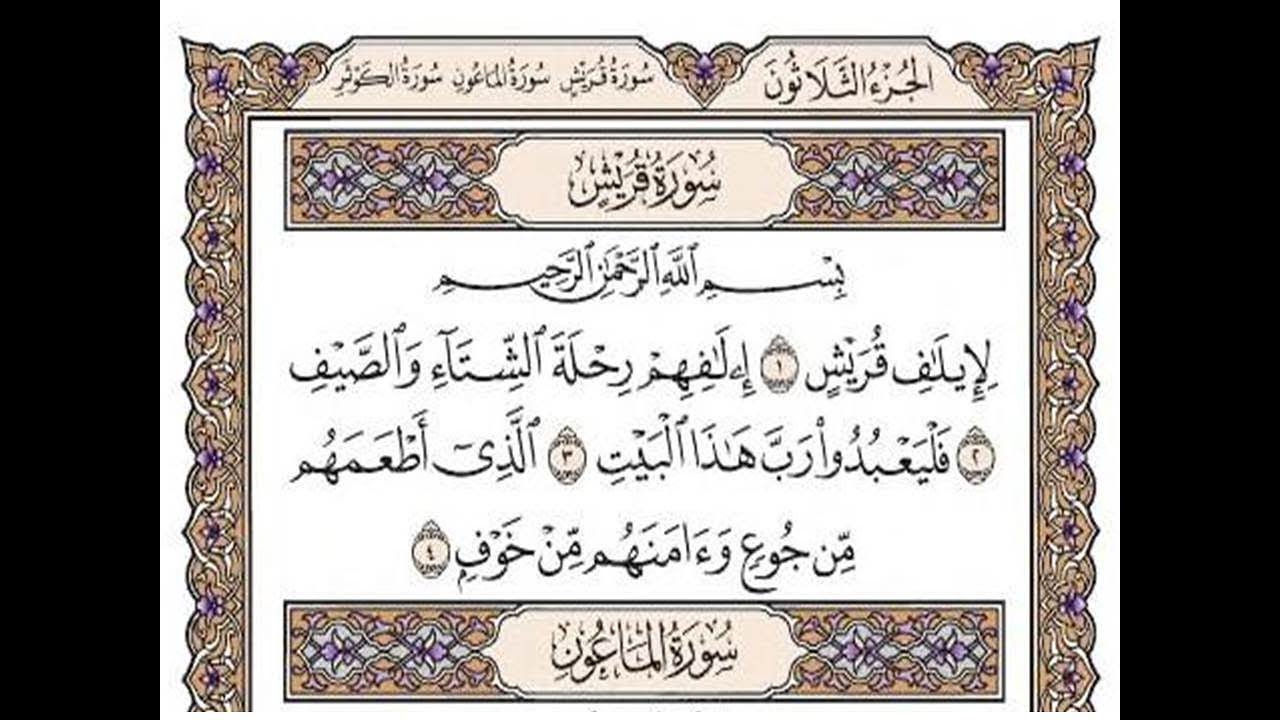 الجُزْءُ الثَّلَاثُونَ سُورَةُ قُرَيْشٍ سُورَةُ المَاعُونِ سُورَةُ الكَوْثَرِ
سُورَةُ قُرَيْشٍ
بِسْمِ ٱللَّهِ ٱلرَّحْمَٰنِ ٱلرَّحِيمِ
لِإِيلَٰفِ قُرَيْشٍ ١ إِۦلَٰفِهِمْ رِحْلَةَ ٱلشِّتَآءِ وَٱلصَّيْفِ
٢ فَلْيَعْبُدُوا۟ رَبَّ هَٰذَا ٱلْبَيْتِ ٣ ٱلَّذِىٓ أَطْعَمَهُم
مِّن جُوعٍ وَءَامَنَهُم مِّنْ خَوْفٍۭ ٤
سُورَةُ المَاعُونِ